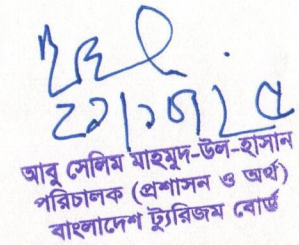 আবু সেলিম মাহমুদ-উল-হাসান
পরিচালক (প্রশাসন ও অর্থ)
বাংলাদেশ ট্যুরিজম বোর্ড